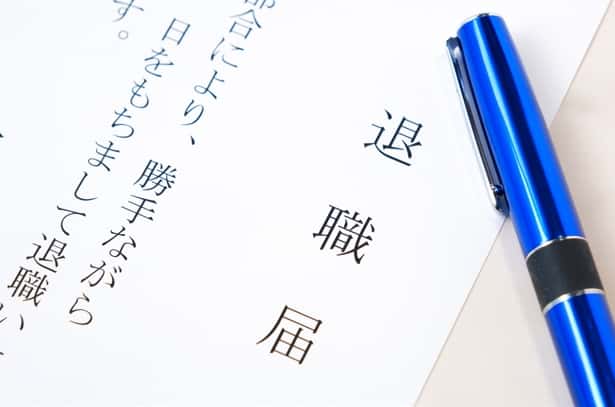 退職届
都合により、勝手ながら
日をもちまして退職い
す。